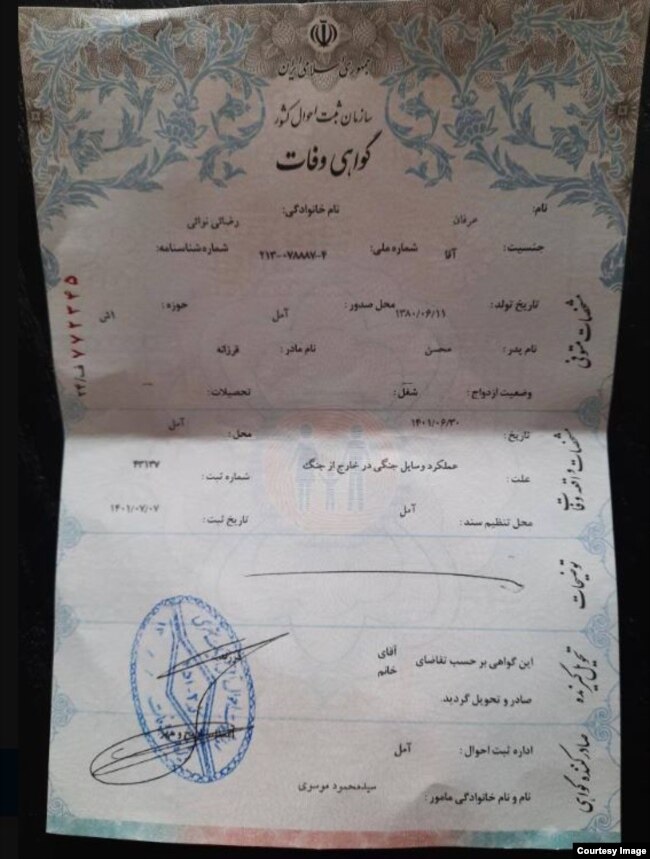 جمهوری اسلامی ایران
سازمان ثبت احوال کشور
گواهی وفات
نام: عرفان نام خانوادگی: رضائی نوائی
جنسیت: آقا شماره ملی: ۲۱۳-۰۷۸۸۸۷-۴ شماره شناسنامه:
تاریخ تولد: ۱۳۸۰/۰۶/۱۱ محل صدور: آمل حوزه:
نام پدر: محسن نام مادر: فرزانه
وضعیت ازدواج: شغل: تحصیلات:
مشخصات متوفی
۷۷۲۲۴۵
تاریخ: ۱۴۰۱/۰۶/۳۰ محل: آمل
علت: عملکرد وسایل جنگی در خارج از جنگ شماره ثبت: ۴۳۱۳۷
محل تنظیم سند: آمل تاریخ ثبت: ۱۴۰۱/۰۷/۰۷
مشخصات واقعه وفات
توضیحات
این گواهی بر حسب تقاضای آقای
خانم
صادر و تحویل گردید.
تحویل گیرنده
اداره ثبت احوال: آمل
نام و نام خانوادگی مامور: سیدمحمود موسوی
صادر کننده گواهی
Courtesy Image